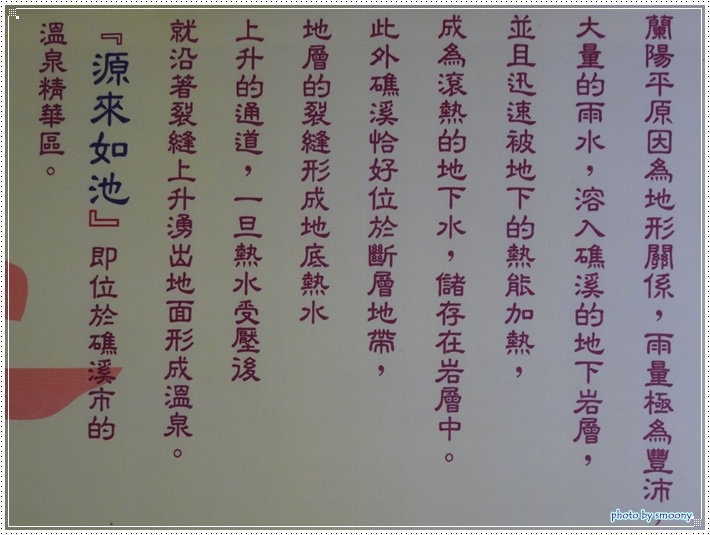 蘭陽平原因為地形關係，雨量極為豐沛，
大量的雨水，溶入礁溪的地下岩層，
並且迅速被地下的熱能加熱，
成為滾熱的地下水，儲存在岩層中。
此外礁溪恰好位於斷層地帶，
地層的裂縫形成地底熱水
上升的通道，一旦熱水受壓後
就沿著裂縫上升湧出地面形成溫泉。
『源來如池』即位於礁溪市的
溫泉精華區。
photo by smoony